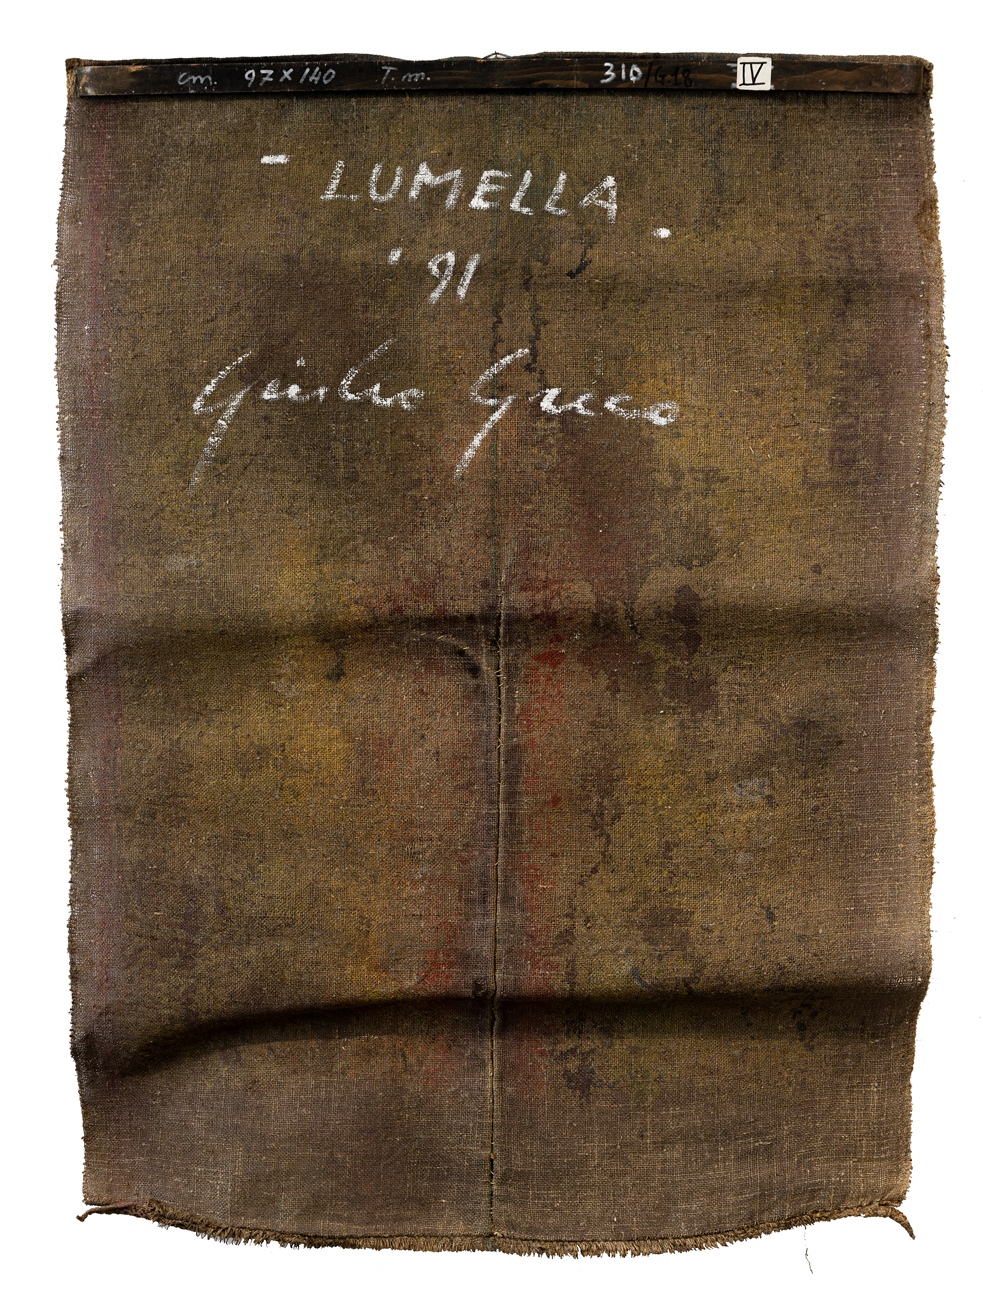 cm. 97 x 140 T.m. 310/G.18 IV
- LUMELLA .
'91
Giulio Greco